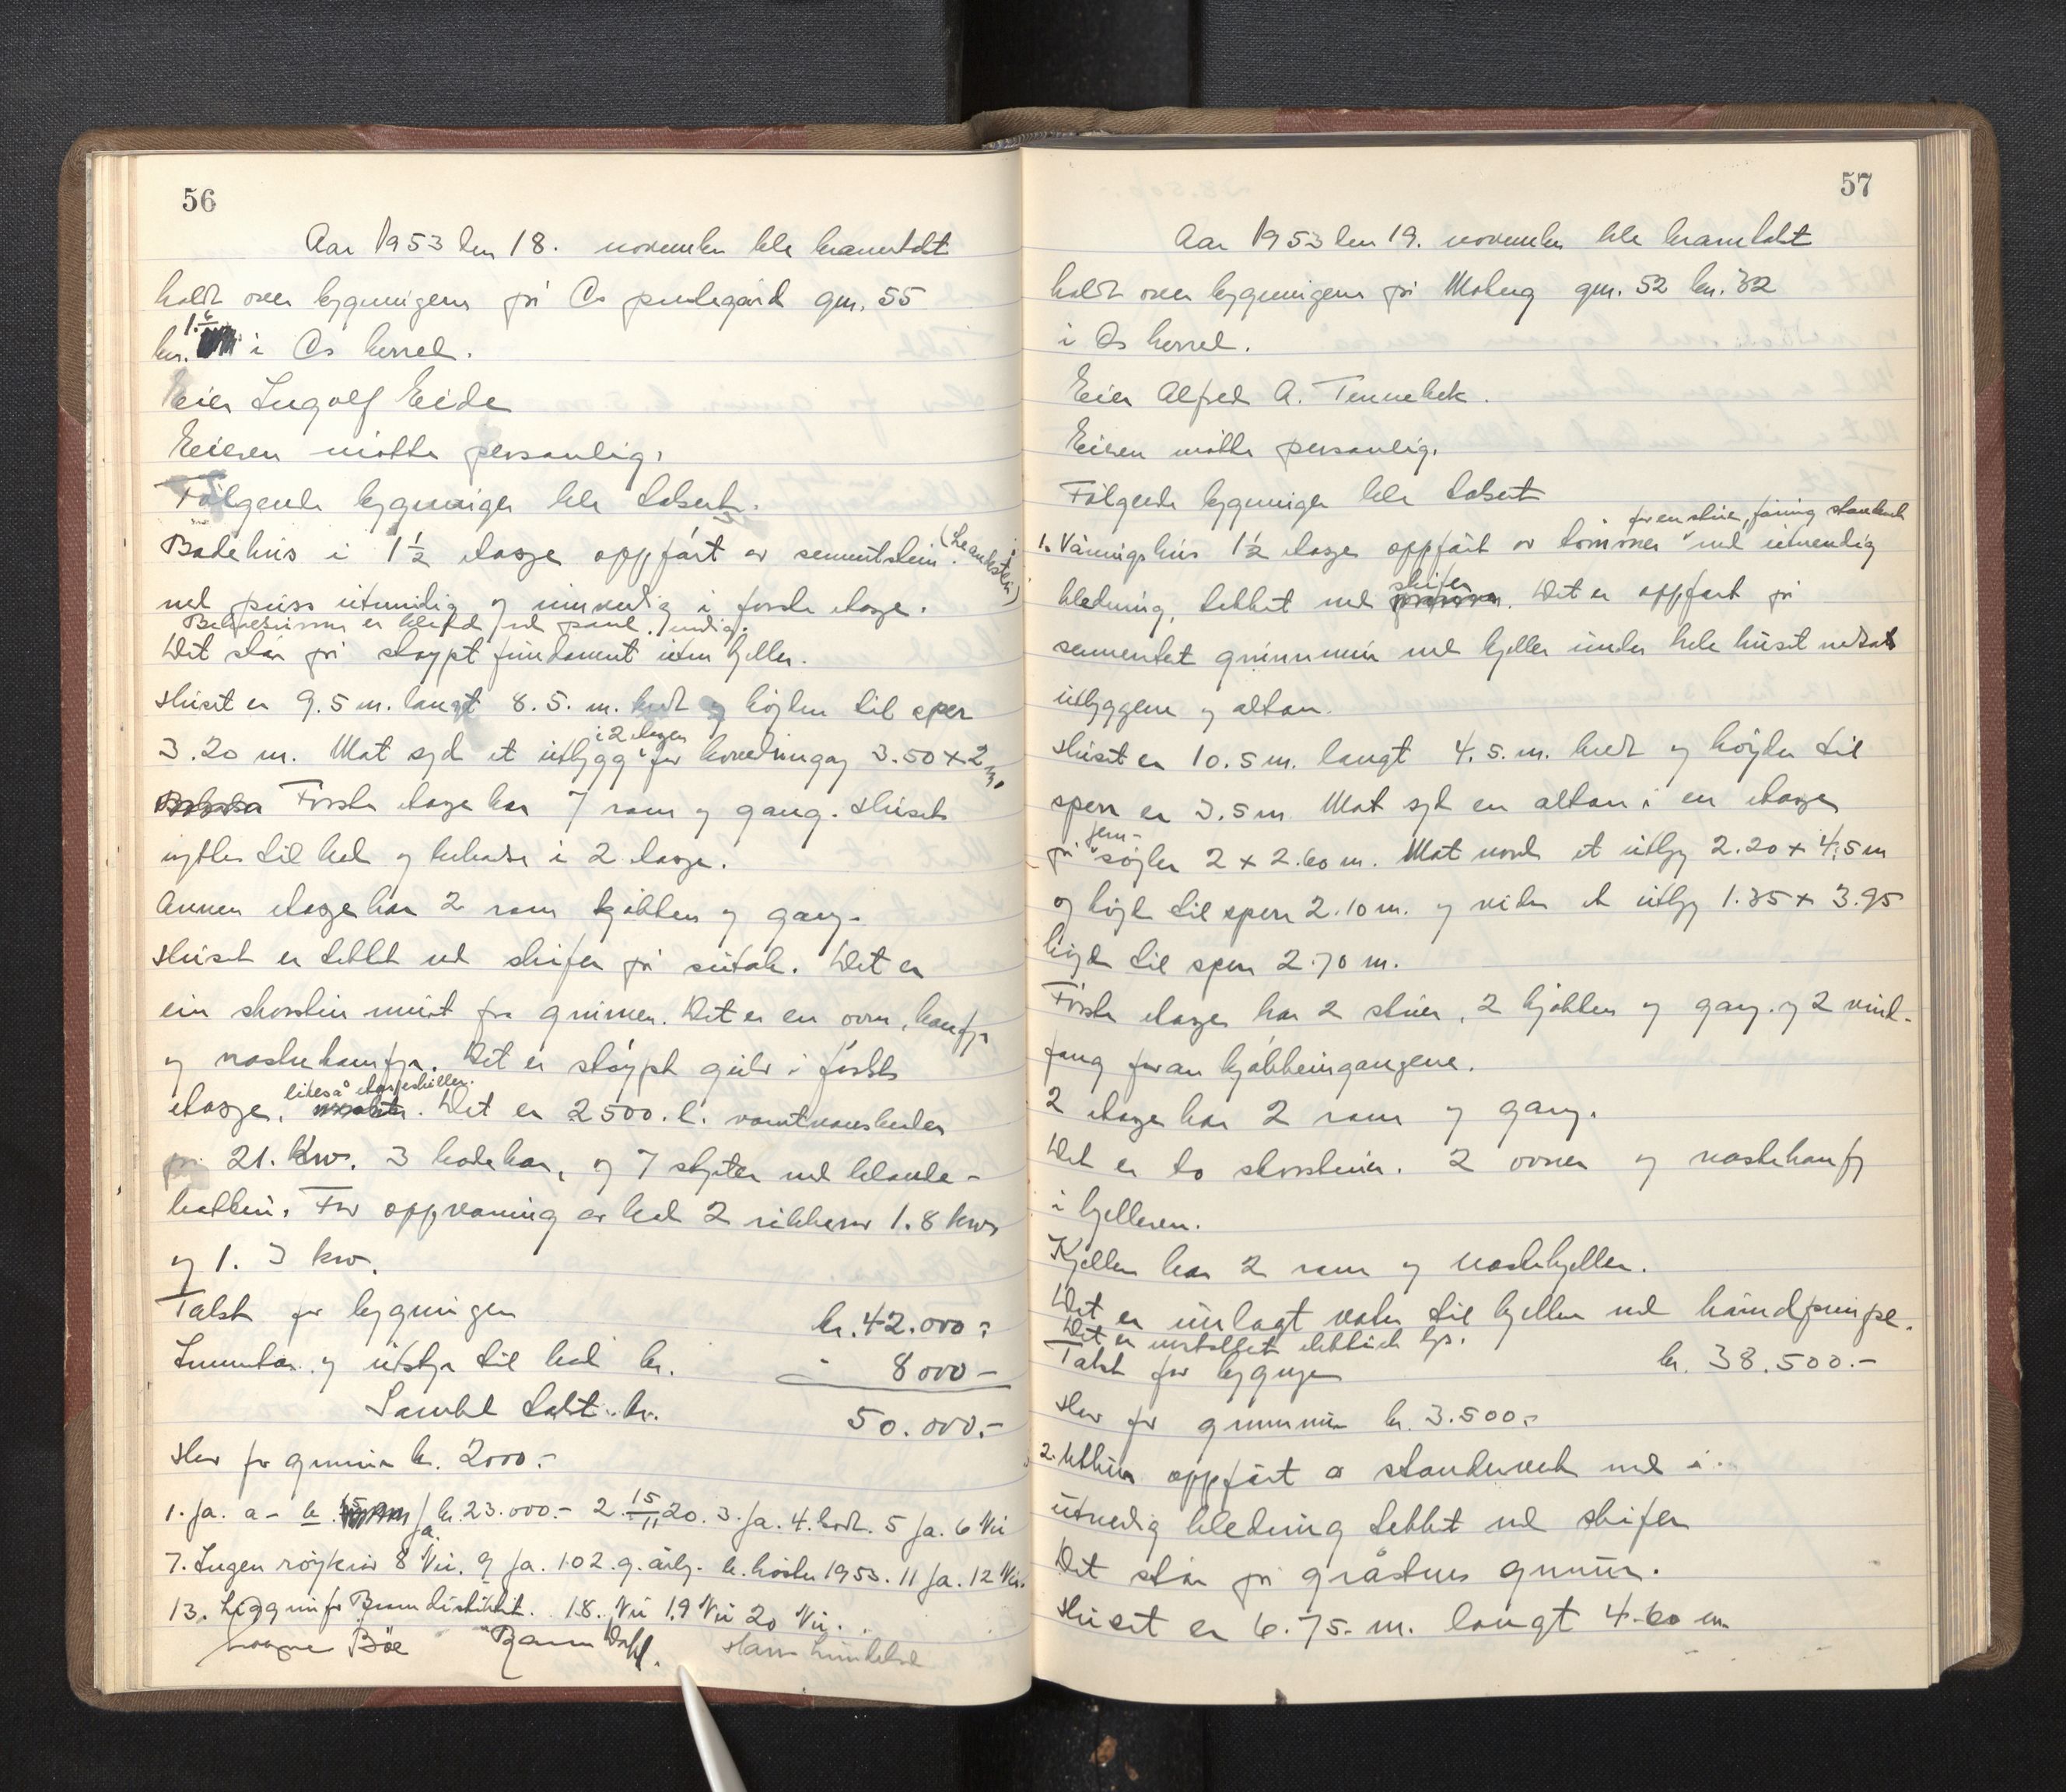 56
Aar 1953 den 18. november ble branntakst
holdt over bygningene på Os prestegård gnr. 55
bnr. 1.6 i Os herred.
Eier Ingolf Eide
Eieren møtte personlig.
Følgende bygninger ble taksert.
Badehus i 1½ etasje oppført av sementstein
med puss utvendig og innvendig i første etasje.
Det står på støypt fundament uten kjeller.
Huset er 9.5 m. langt 8.5. m. bredt og højden til sperr
i 2 etager
3.20 m. Mot syd et utbygg for hovedinngang 3.50 x 2 m.
Første etage har 7 rom og gang. Huset
nyttes til bad og beboelse i 2 etasje.
Annen etage har 2 rom kjøkken og gang.
Huset er tekket med skifer på sutak. Det er
ein skorstein murt fra grunnen. Det er en ovn, komfyr
og vaskekomfyr. Det er støypt gulv i første
likeså etasjeskiller.
etasje. Det er 2500. l. varmtvannsbereder
på 21. Kw. 3 badekar, og 7 dusjer med blande-
batteri. For oppvarming av bad 2 1.8 kw
og 1. 3 kw.
Takst for bygningen kr. 42.000.-
Inventar og utstyr til bad kr. 8000-
Samlet takst kr. 50.000.-
Herav for grunnmur kr. 2000.-
1. Ja. a - b. Ja kr. 23.000.- 2. 15/11 20. 3. Ja. 4. Godt. 5 Ja. 6 Nei
7. Ingen røykovn 8 Nei. 9 Ja. 10 2. g. årlig. b. høsten 1953. 11 Ja. 12 Nei.
13. Ligg innfor Branndistriktet. 18. Nei 19 Nei 20 Nei.
Bøe Dahl.
57
Aar 1953 den 19. november ble branntakst
holdt over bygningene på Moberg gnr. 52 bnr. 32
i Os herred.
Eier Alfred A. Tennebek.
Eieren møtte personlig.
Følgende bygninger ble taksert
1. Våningshus 1½ etasje oppført av tømmer med utvendig
skifer
kledning, tekket med. Det er oppført på
sementet grunnmur med kjeller under hele huset untatt
utbyggene og altan.
Huset er 10.5 m. langt 4.5. m. bredt og høyden til
sperr er 3.5 m Mot syd en altan i en etasje
jern-
på søyler 2 x 2.60 m. Mot nord et utbygg 2.20 x 4.5 m
og høyde til sperr 2.10 m. og videre et utbygg 1.35 x 3.95
høyde til sperr 2.70 m.
Første etasje har 2 stuer, 2 kjøkken og gang. og 2 vind-
fang foran kjøkkeningangene.
2 etage har 2 rom og gang.
Det er to skorsteiner. 2 ovner og vaskekomfyr
i kjelleren.
Kjeller har 2 rom og vaskekjeller.
Det er innlagt vatn til kjeller med håndpumpe.
Det er installert elektrisk lys.
Takst for bygningen kr. 38.500.-
Herav for grunnmur kr. 3.500.-
2. Uthus oppført av standerverk med
utvendig kledning tekket med skifer
Det står på gråsteins grunnmur.
Huset er 6.75. m. langt 4.60 m